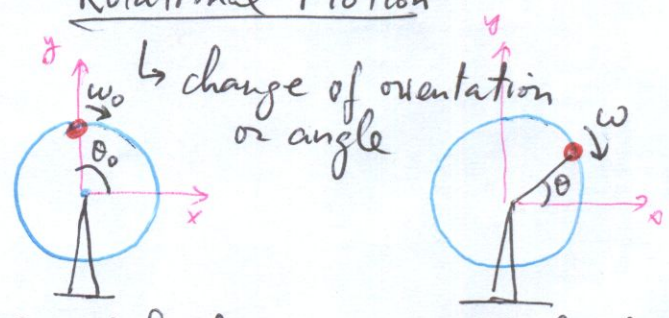 Rotational Motion
↳ change of orientation
or angle
y
ω₀
θ₀
x
y
ω
θ
x